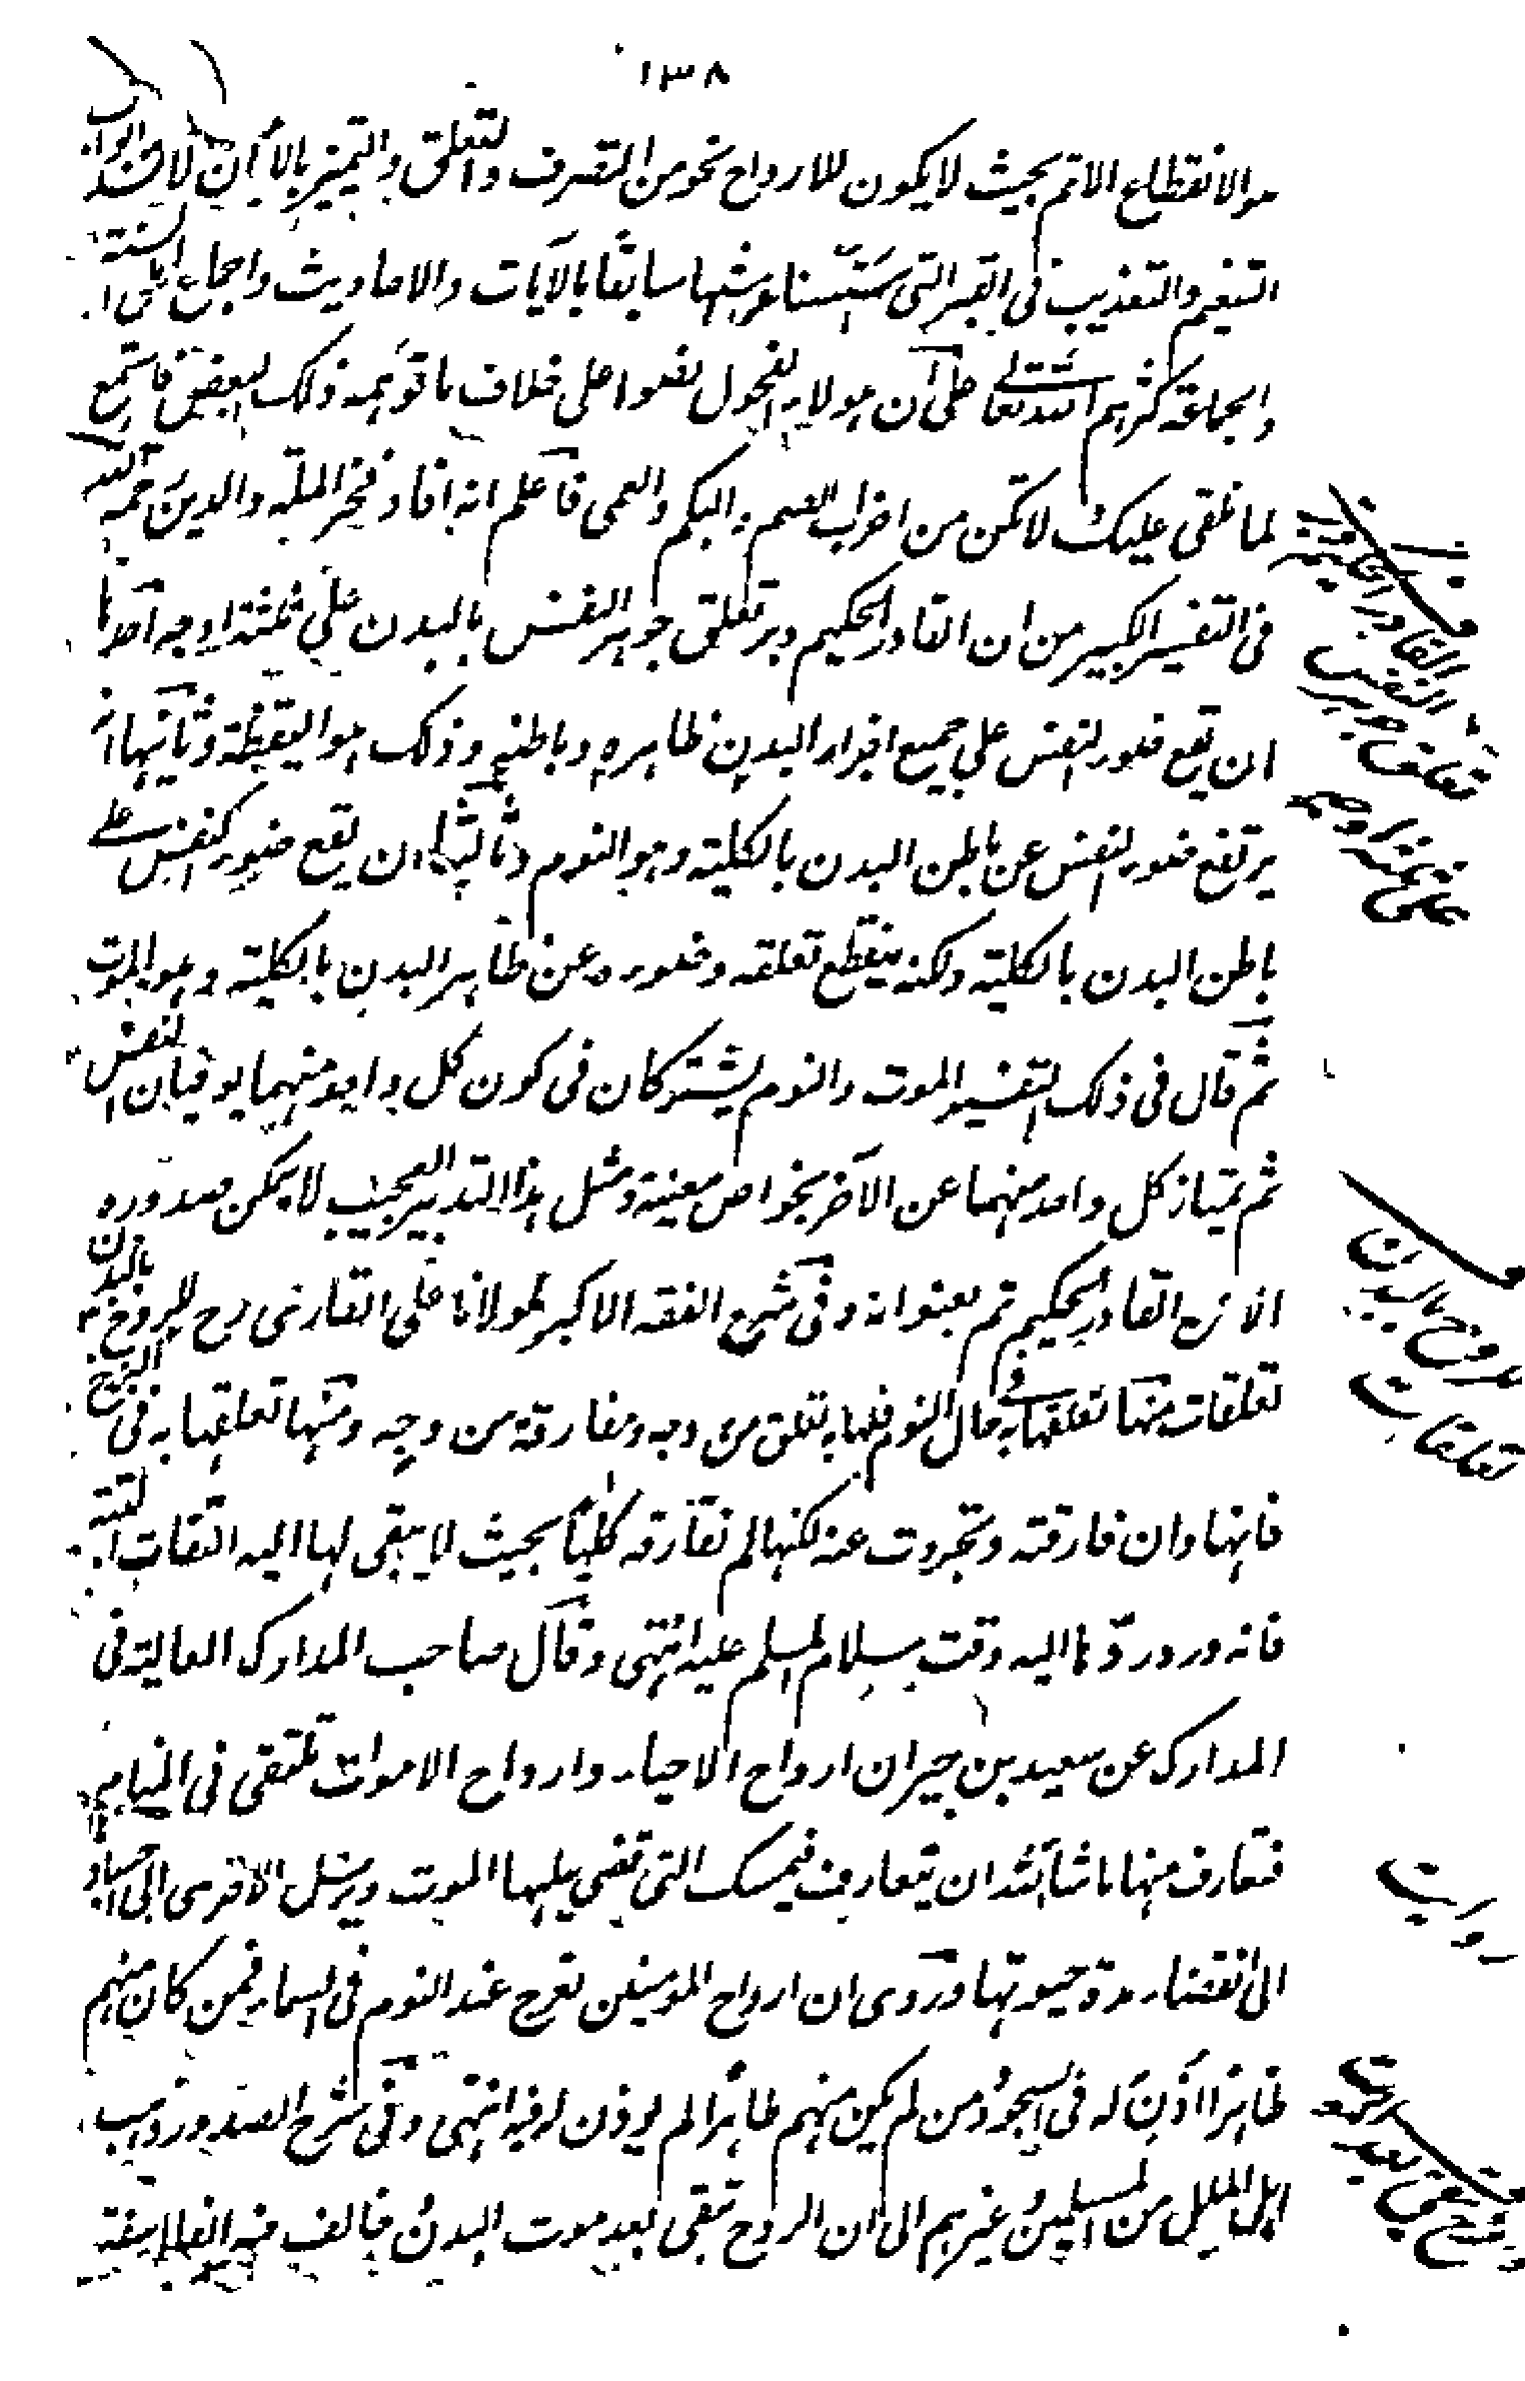 ١٣٨
هو الانقطاع الاتم بحيث لا يكون للارواح نحو من التصرف والتعلق والتميز بالأبدان لانسد ابواب
التنعيم والتعذيب فى القبر التى سابقا بالآيات والاحاديث واجماع اهل السنة
والجماعة كثرهم الله تعالى على أن هؤلاء الفحول نصوا على خلاف ما توهمه ذلك البعض فاستمع
لما نلقى عليك لا تكن من اضراب الصم والبكم والعمى فاعلم انه افاد فخر الملة والدين رحمه الله
فى التفسير الكبير من ان القادر الحكيم دبر تعلق جوهر النفس بالبدن على ثلثة اوجه احدها
ان يقع ضوء النفس على جميع اجزاء البدن ظاهره وباطنه وذلك هو اليقظة وثانيها ان
يرتفع ضوء النفس عن باطن البدن بالكلية وهو النوم وثالثها ان يقع ضوء النفس على
باطن البدن بالكلية ولكنه ينقطع تعلقه وضوءه عن ظاهر البدن بالكلية وهو الموت
ثم قال فى ذلك التفسير الموت والنوم يشتركان فى كون كل واحد منهما يوفيان النفس
ثم يمتاز كل واحد منهما عن الآخر بخواص معينة ومثل هذا التدبير العجيب لا يمكن صدوره
الا من القادر الحكيم تم بعنوانه وفى شرح الفقه الاكبر لمولانا على القارى رح للروح بالبدن
تعلقات منها تعلقها به فى حال النوم فلها به تعلق من وجه ومفارقة من وجه ومنها تعلقها به فى البرزخ
فانها وان فارقته وتجردت عنه لكنها لم تفارقه كليا بحيث لا يبقى لها اليه التفات البتة
فانه ورد ردها اليه وقت سلام المسلم عليه انتهى وقال صاحب المدارك العالية فى
المدارك عن سعيد بن جبير ان ارواح الاحياء وارواح الاموات تلتقى فى المنام
فتعارف منها ما شاء الله ان يتعارف فيمسك التى قضى عليها الموت ويرسل الاخرى الى اجسادها
الى انقضاء مدة حيوتها وروى ان ارواح المؤمنين تعرج عند النوم فى السماء فمن كان منهم
طاهرا أذن له فى السجود ومن لم يكن منهم طاهرا لم يوذن له فيه انتهى وفى شرح الصدور ذهب
اهل الملل من المسلمين وغيرهم الى ان الروح تبقى بعد موت البدن وخالف فيه الفلاسفة
القادر الحكيم
تعلق جوهر النفس
على ثلثة اوجه
للروح بالبدن
تعلقات
روايت
روح تبقى بعد موت